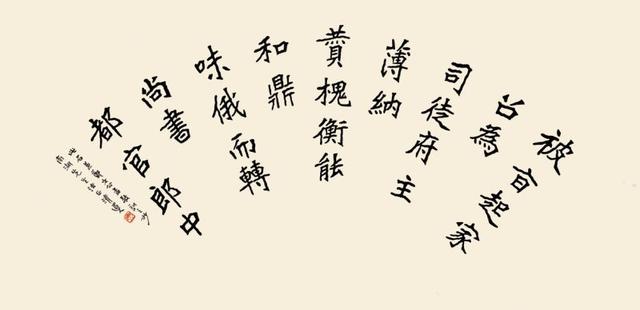 被旨起家
召為
司徒府主
薄納
賛槐衡能
和鼎
味俄而轉
尚書
都官郎中